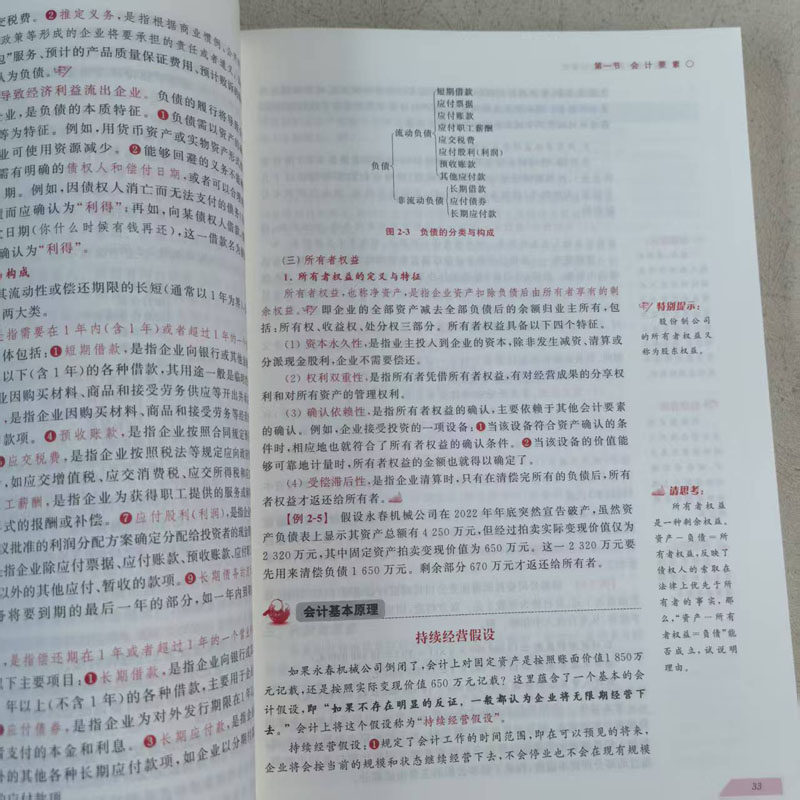 交税费。❷推定义务，是指根据商业惯例、公
政策等形成的企业将要承担的责任或者
包”服务、预计的产品质量保证费用、预计
认为负债。
导致经济利益流出企业。负债的履行将导
企业，是负债的本质特征。❶负债需以资产
等为特征。例如，用货币资产或实物资产形
业可使用资源减少。❷能够回避的义务不
需有明确的债权人和偿付日期，或者可以合理
期。例如，因债权人消亡而无法支付的债
而应确认为“利得”；再如，向某债权人借款
日期（你什么时候有钱再还），这一借款名为
确认为“利得”。
构成
其流动性或偿还期限的长短（通常以1年为
两大类。
是指需要在1年内（含1年）或者超过1年的一
体包括：❶短期借款，是指企业向银行或其他
以下（含1年）的各种借款，其用途一般是临时
业因购买材料、商品和接受劳务供应等开出
，是指企业因购买材料、商品和接受劳务等
款项。❹预收账款，是指企业按照合同规定
应交税费，是指企业按照税法等规定应向
，如应交增值税、应交消费税、应交所得税和
工薪酬，是指企业为获得职工提供的服务或
式的报酬或补偿。❼应付股利（利润），是指企
议批准的利润分配方案确定分配给投资者的现金
是指企业除应付票据、应付账款、预收账款、应付
以外的其他应付、暂收的款项。❾长期债务
务将要到期的最后一年的部分，如一年内到期
，是指偿还期在1年或者超过1年的一个营业
以下主要项目：❶长期借款，是指企业向银行或
年以上（不含1年）的各种借款，主要用于
应付债券，是指企业为对外发行期限在1年以
支付的本金和利息。❸长期应付款，是指企业
外的其他各种长期应付款项，如企业以分期
款项。
第一节 会计要素
负债
流动负债
短期借款
应付票据
应付账款
应付职工薪酬
应交税费
应付股利（利润）
预收账款
其他应付款
非流动负债
长期借款
应付债券
长期应付款
图2-3 负债的分类与构成
（三）所有者权益
1. 所有者权益的定义与特征
所有者权益，也称净资产，是指企业资产扣除负债后由所有者享有的剩
余权益。即企业的全部资产减去全部负债后的余额归业主所有，包
括：所有权、收益权、处分权三部分。所有者权益具备以下四个特征。
（1）资本永久性，是指业主投入到企业的资本，除非发生减资、清算或
分派现金股利，企业不需要偿还。
（2）权利双重性，是指所有者凭借所有者权益，有对经营成果的分享权
利和对所有资产的管理权利。
（3）确认依赖性，是指所有者权益的确认，主要依赖于其他会计要素
的确认。例如，企业接受投资的一项设备：❶当该设备符合资产确认的条
件时，相应地也就符合了所有者权益的确认条件。❷当该设备的价值能
够可靠地计量时，所有者权益的金额也就得以确定了。
（4）受偿滞后性，是指企业清算时，只有在清偿完所有的负债后，所有
者权益才返还给所有者。
【例2-5】 假设永春机械公司在2022年年底突然宣告破产，虽然资
产负债表上显示其资产总额有4 250万元，但经过拍卖实际变现价值仅为
2 320万元，其中固定资产拍卖变现价值为650万元。这一2 320万元要
先用来清偿负债1 650万元。剩余部分670万元才返还给所有者。
特别提示：
股份制公司
的所有者权益又
称为股东权益。
请思考：
所有者权益
是一种剩余权益。
资产－负债＝所
有者权益，反映了
债权人的索取在
法律上优先于所
有者的事实，那
么，“资产－所有
者权益＝负债”能
否成立，试说明
理由。
会计基本原理
持续经营假设
如果永春机械公司倒闭了，会计上对固定资产是按照账面价值1 850万
元记载，还是按照实际变现价值650万元记载？这里蕴含了一个基本的会
计假设，即“如果不存在明显的反证，一般都认为企业将无限期经营下
去。”会计上将这个假设称为“持续经营假设”。
持续经营假设：❶规定了会计工作的时间范围，即在可以预见的将来，
企业将会按当前的规模和状态继续经营下去，不会停业也不会在现有规模
33